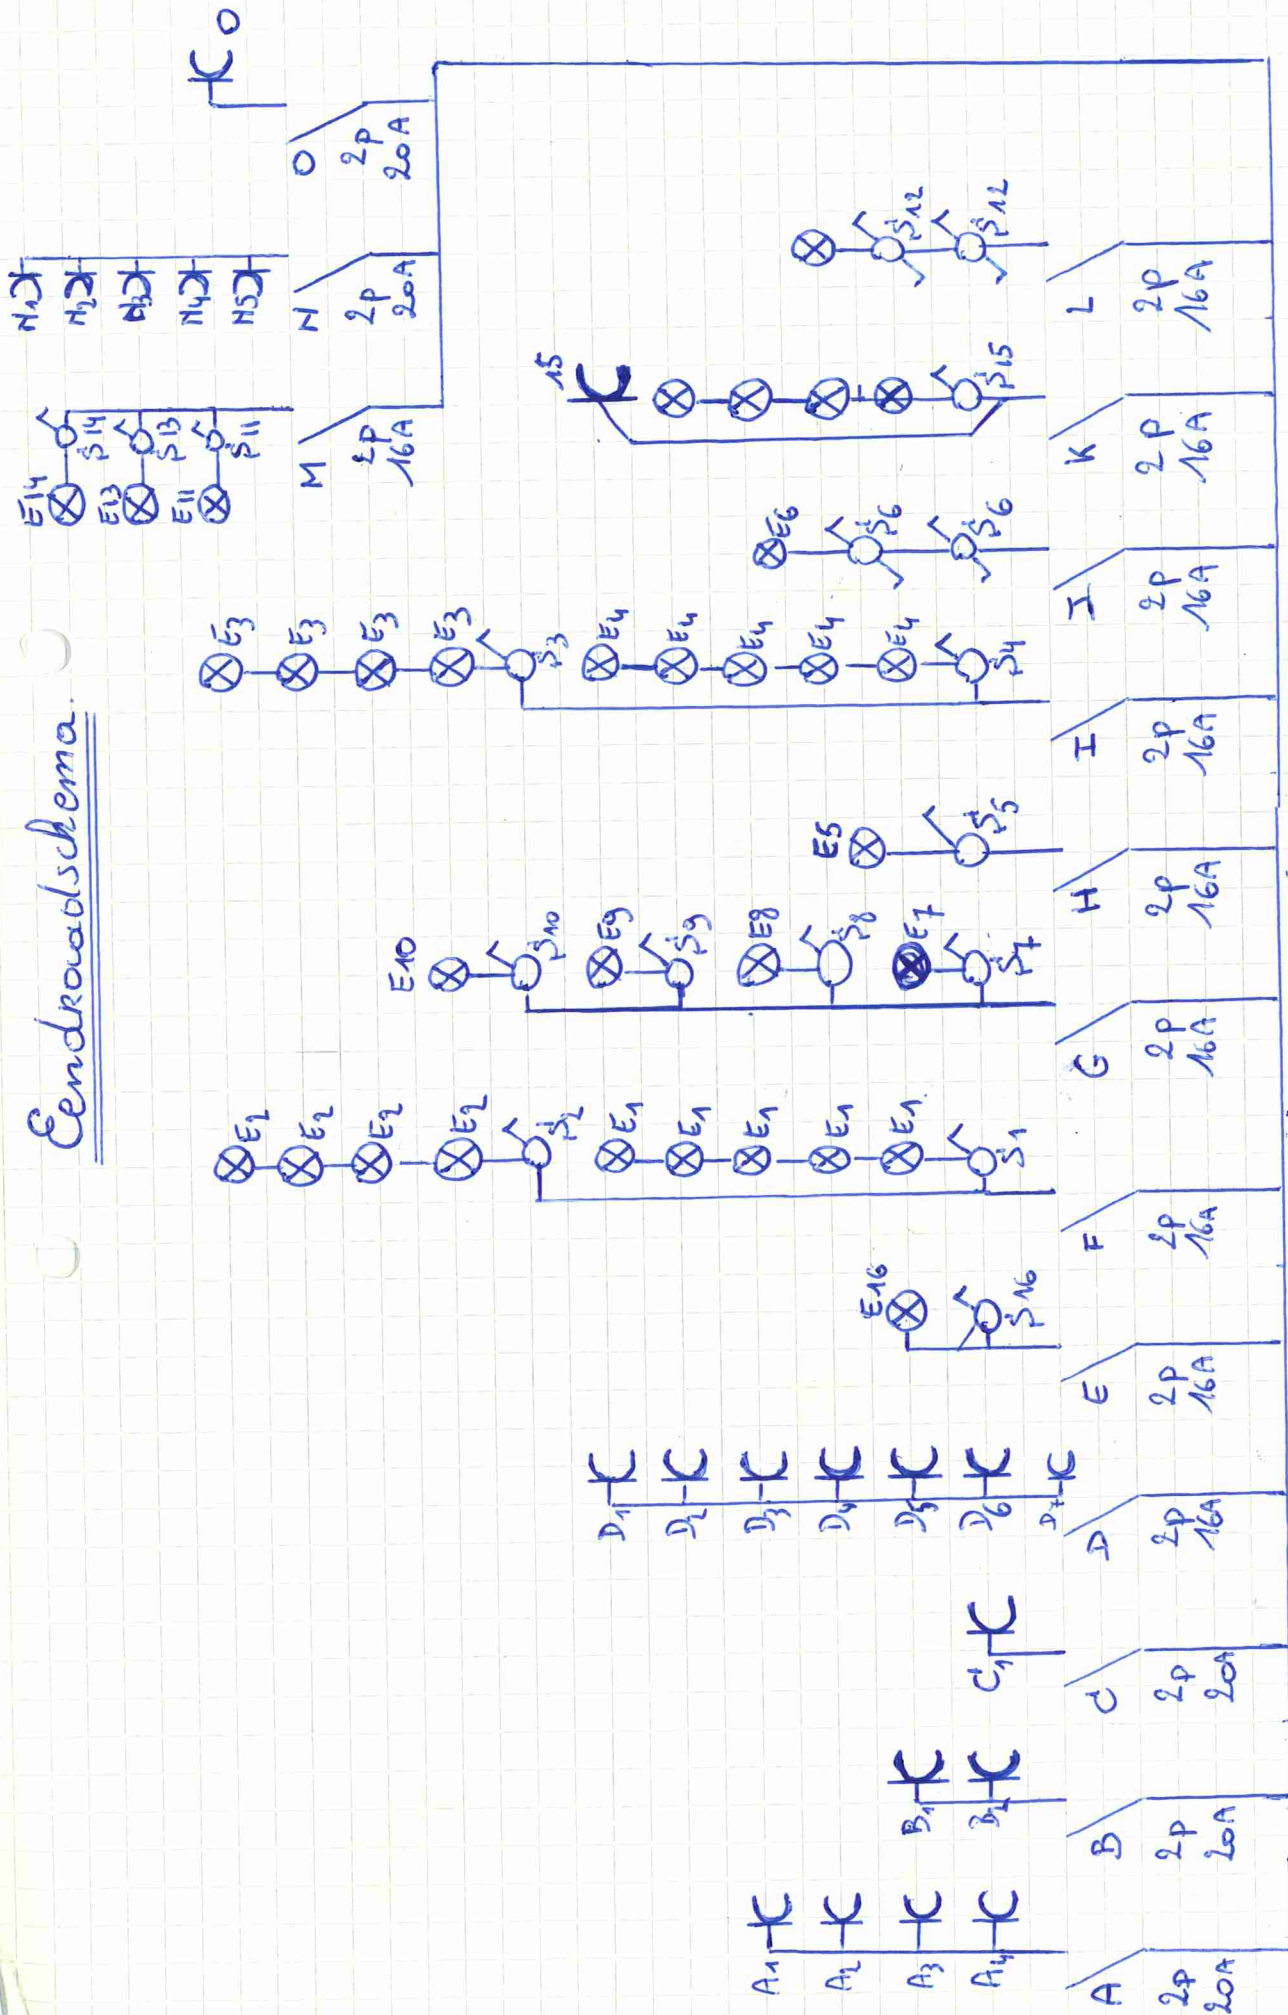 Eendraadschema.
A1
A2
A3
A4
A
2P
20A
B1
B2
B
2P
20A
C1
C
2P
20A
D1
D2
D3
D4
D5
D6
D7
D
2P
16A
E16
S16
E
2P
16A
E2
E2
E2
E2
S2
E1
E1
E1
E1
E1
S1
F
2P
16A
E10
S10
E9
S9
E8
S8
E7
S7
G
2P
16A
E5
S5
H
2P
16A
E3
E3
E3
E3
S3
E4
E4
E4
E4
E4
S4
I
2P
16A
E6
S6
S6
J
2P
16A
15
S15
K
2P
16A
S12
S12
L
2P
16A
E14
S14
E13
S13
E11
S11
M
2P
16A
N1
N2
N3
N4
N5
N
2P
20A
O
O
2P
20A